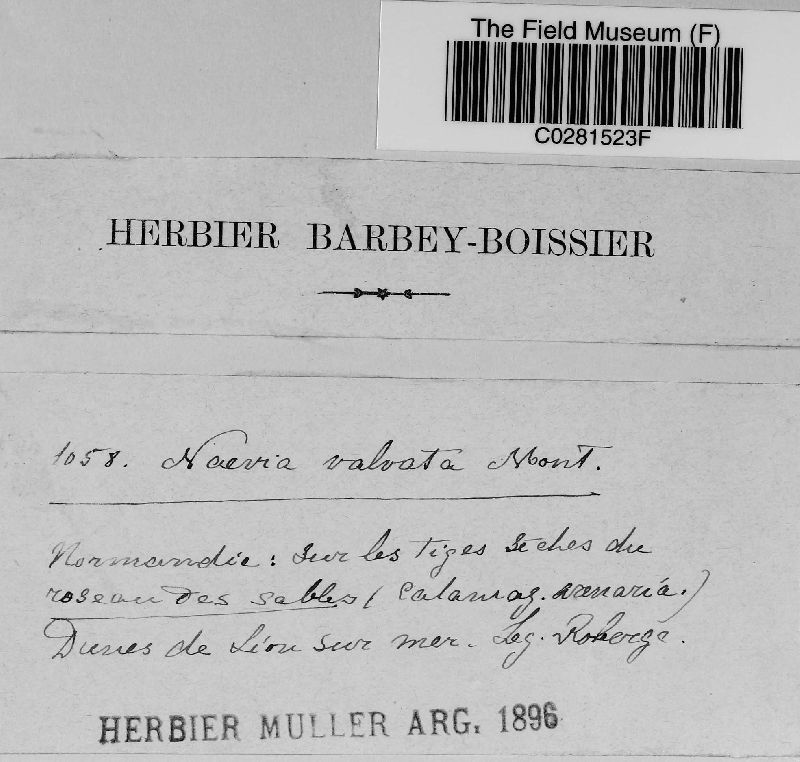 The Field Museum (F)
C0281523F
HERBIER BARBEY-BOISSIER
1058. Naevia valvata Mont.
Normandie : sur les tiges sèches du
roseau des sables ( Calamag. arenaria.)
Dunes de Lion sur mer. Leg. Roberge.
HERBIER MULLER ARG. 1896